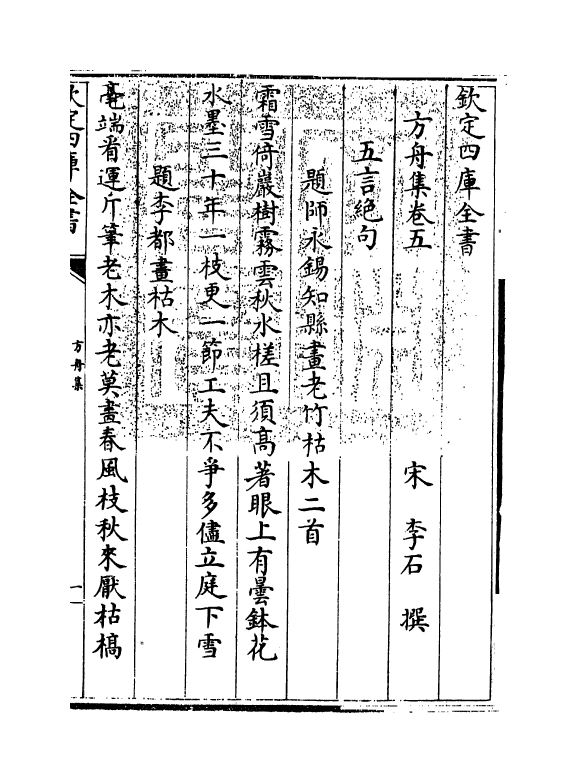 欽定四庫全書
方舟集卷五
宋 李石 撰
五言絶句
題師永錫知縣畫老竹枯木二首
霜雪倚巖樹霧雲秋水槎且須高著眼上有曇鉢花
水墨三十年一枝更一節工夫不爭多儘立庭下雪
題李都畫枯木
毫端看運斤筆老木亦老莫畫春風枝秋來厭枯槁
欽定四庫全書
方舟集
一